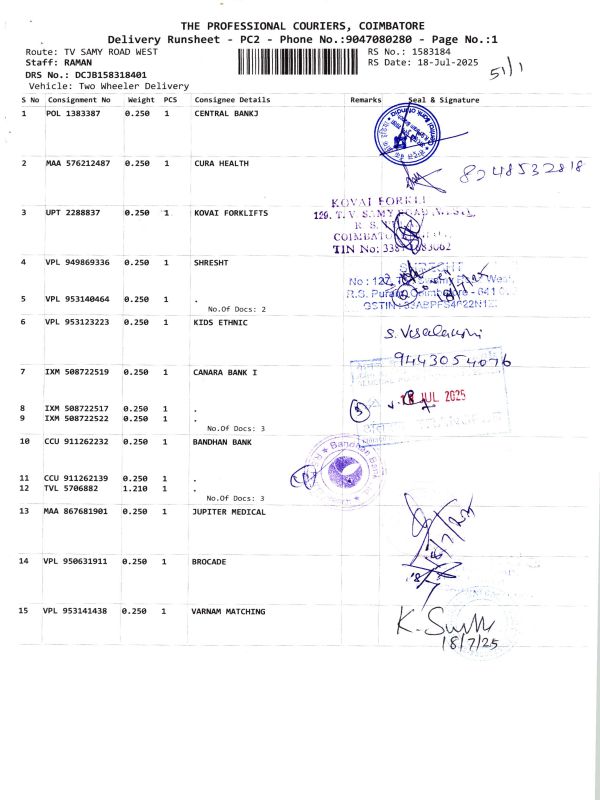 THE PROFESSIONAL COURIERS, COIMBATORE
Delivery Runsheet - PC2 - Phone No.:9047080280 - Page No.:1
Route: TV SAMY ROAD WEST RS No.: 1583184
Staff: RAMAN RS Date: 18-Jul-2025
DRS No.: DCJB158318401 51/1
Vehicle: Two Wheeler Delivery
S No Consignment No Weight PCS Consignee Details Remarks Seal & Signature
1 POL 1383387 0.250 1 CENTRAL BANKJ
2 MAA 576212487 0.250 1 CURA HEALTH
8248532818
3 UPT 2288837 0.250 1 KOVAI FORKLIFTS
KOVAI FORKLI
COIMBATO
TIN No:
4 VPL 949869336 0.250 1 SHRESHT
5 VPL 953140464 0.250 1 .
No.Of Docs: 2
6 VPL 953123223 0.250 1 KIDS ETHNIC
9443054076
7 IXM 508722519 0.250 1 CANARA BANK I
JUL 2025
8 IXM 508722517 0.250 1 .
9 IXM 508722522 0.250 1 .
No.Of Docs: 3
10 CCU 911262232 0.250 1 BANDHAN BANK
Bandhan Bank
11 CCU 911262139 0.250 1 .
12 TVL 5706882 1.210 1 .
No.Of Docs: 3
13 MAA 867681901 0.250 1 JUPITER MEDICAL
18/7/25
14 VPL 950631911 0.250 1 BROCADE
15 VPL 953141438 0.250 1 VARNAM MATCHING
18/7/25